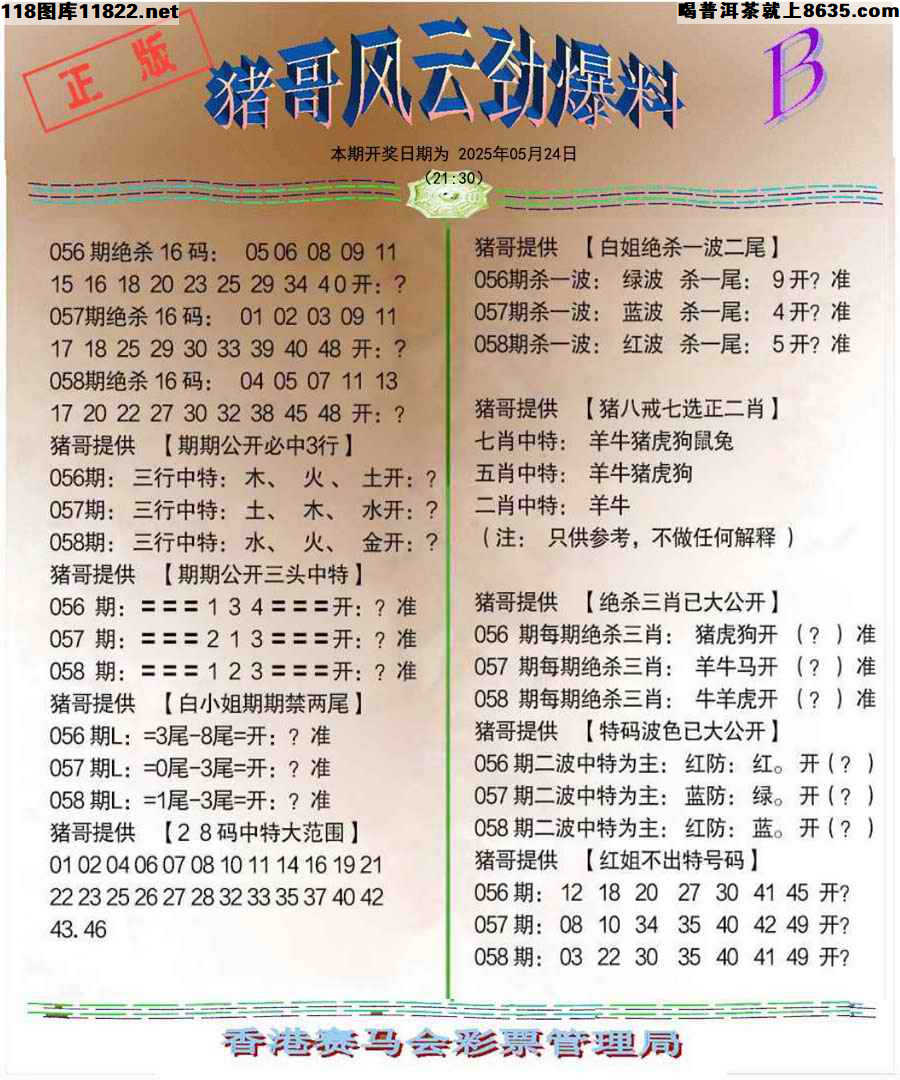 118图库11822.net
喝普洱茶就上8635.com
正版
猪哥风云劲爆料
B
本期开奖日期为 2025年05月24日
(21:30)
056期绝杀16码： 05 06 08 09 11
15 16 18 20 23 25 29 34 40开：?
057期绝杀16码： 01 02 03 09 11
17 18 25 29 30 33 39 40 48 开：?
058期绝杀16码： 04 05 07 11 13
17 20 22 27 30 32 38 45 48 开：?
猪哥提供 【期期公开必中3行】
056期：三行中特：木、 火、 土开：?
057期：三行中特：土、 木、 水开：?
058期：三行中特：水、 火、 金开：?
猪哥提供 【期期公开三头中特】
056 期：＝＝＝1 3 4＝＝＝开：? 准
057 期：＝＝＝2 1 3＝＝＝开：? 准
058 期：＝＝＝1 2 3＝＝＝开：? 准
猪哥提供 【白小姐期期禁两尾】
056期L：=3尾-8尾=开：? 准
057期L：=0尾-3尾=开：? 准
058期L：=1尾-3尾=开：? 准
猪哥提供 【28码中特大范围】
01 02 04 06 07 08 10 11 14 16 19 21
22 23 25 26 27 28 32 33 35 37 40 42
43.46
猪哥提供 【白姐绝杀一波二尾】
056期杀一波： 绿波 杀一尾： 9开? 准
057期杀一波： 蓝波 杀一尾： 4开? 准
058期杀一波： 红波 杀一尾： 5开? 准
猪哥提供 【猪八戒七选正二肖】
七肖中特： 羊牛猪虎狗鼠兔
五肖中特： 羊牛猪虎狗
二肖中特： 羊牛
（注： 只供参考，不做任何解释 ）
猪哥提供 【绝杀三肖已大公开】
056 期每期绝杀三肖： 猪虎狗开 （? ）准
057 期每期绝杀三肖： 羊牛马开 （? ）准
058 期每期绝杀三肖： 牛羊虎开 （? ）准
猪哥提供 【特码波色已大公开】
056期二波中特为主：红防：红。开(? )
057期二波中特为主：蓝防：绿。开(? )
058期二波中特为主：红防：蓝。开(? )
猪哥提供 【红姐不出特号码】
056期： 12 18 20 27 30 41 45 开?
057期： 08 10 34 35 40 42 49 开?
058期： 03 22 30 35 40 41 49 开?
香港赛马会彩票管理局